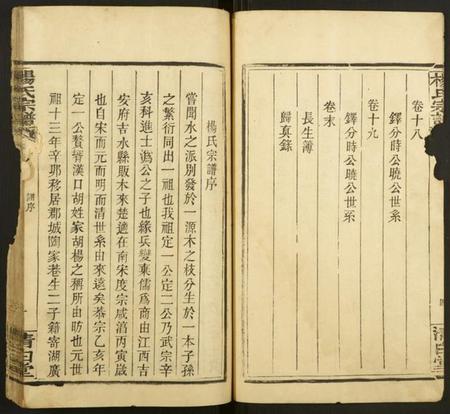 卷十八
鐸分時公曉公世系
卷十九
鐸分時公曉公世系
卷末
長生簿
歸真錄
楊氏宗譜
清白堂
楊氏宗譜序
嘗聞水之派別發於一源木之枝分生於一本子孫
之繁衍同出一祖也我祖定一公定二公乃武宗辛
亥科進士溈公之子也緣兵變棄儒為商由江西吉
安府吉水縣販木來楚適在南宋度宗咸淳丙寅歲
也自宋而元而明而清世系由來遠矣恭宗乙亥年
定一公贅壻漢口胡姓家胡楊之稱所由昉也元世
祖十三年辛耶移居郡城陶家巷生二子籍寄湖廣
楊氏宗譜
譜序
清白堂